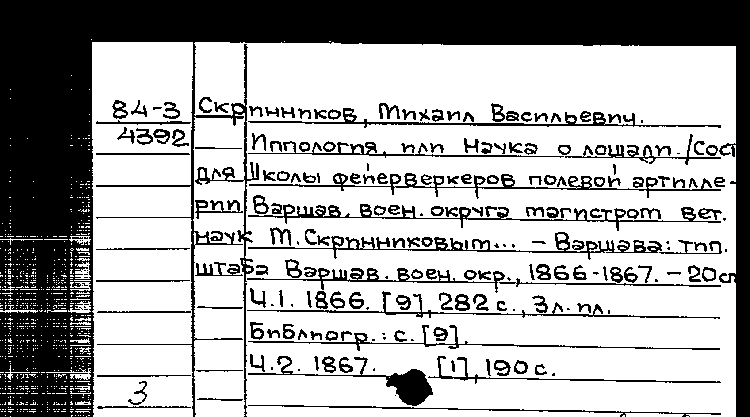 84-3 Скринников, Михаил Васильевич.
4392 Иппология, или наука о лошади. /Сост
для Школы фейерверкеров полевой артилле-
рии Варшав. воен. округа магистром вет.
наук М. Скринниковым... – Варшава: тип.
штаба Варшав. воен. окр., 1866-1867. – 20см
Ч.1. 1866. [9], 282 с., 3 л. пл.
Библиогр.: с. [9].
Ч.2. 1867. [1], 190 с.
3